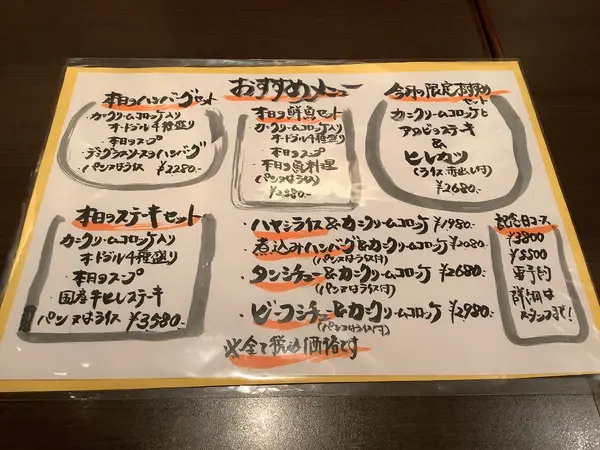 おすすめメニュー
本日のハンバーグセット
カニクリームコロッケ入り
オードブル4種盛り
・本日のスープ
デミグラスソースのハンバーグ
パン又はライス ¥2280-
本日の鮮魚セット
カニクリームコロッケ入り
オードブル4種盛り
・本日のスープ
本日の魚料理
(パン又はライス)
¥2580-
今月の限定
セット
カニクリームコロッケと
アワビステーキ
&
ヒレカツ
(ライス・赤出し付)
¥2680-
本日のステーキセット
カニクリームコロッケ入り
オードブル4種盛り
本日のスープ
・国産牛ヒレステーキ
パン又はライス ¥3580-
・ハヤシライス&カニクリームコロッケ ¥1980-
・煮込みハンバーグ&カニクリームコロッケ ¥2080-
(パン又はライス付)
・タンシチュー&カニクリームコロッケ ¥2680-
(パン又はライス付)
・ビーフシチュー&カニクリームコロッケ ¥2980-
(パン又はライス付)
※全て税込価格です
記念日コース
¥3800
¥5500
要予約
詳細は
スタッフまで!